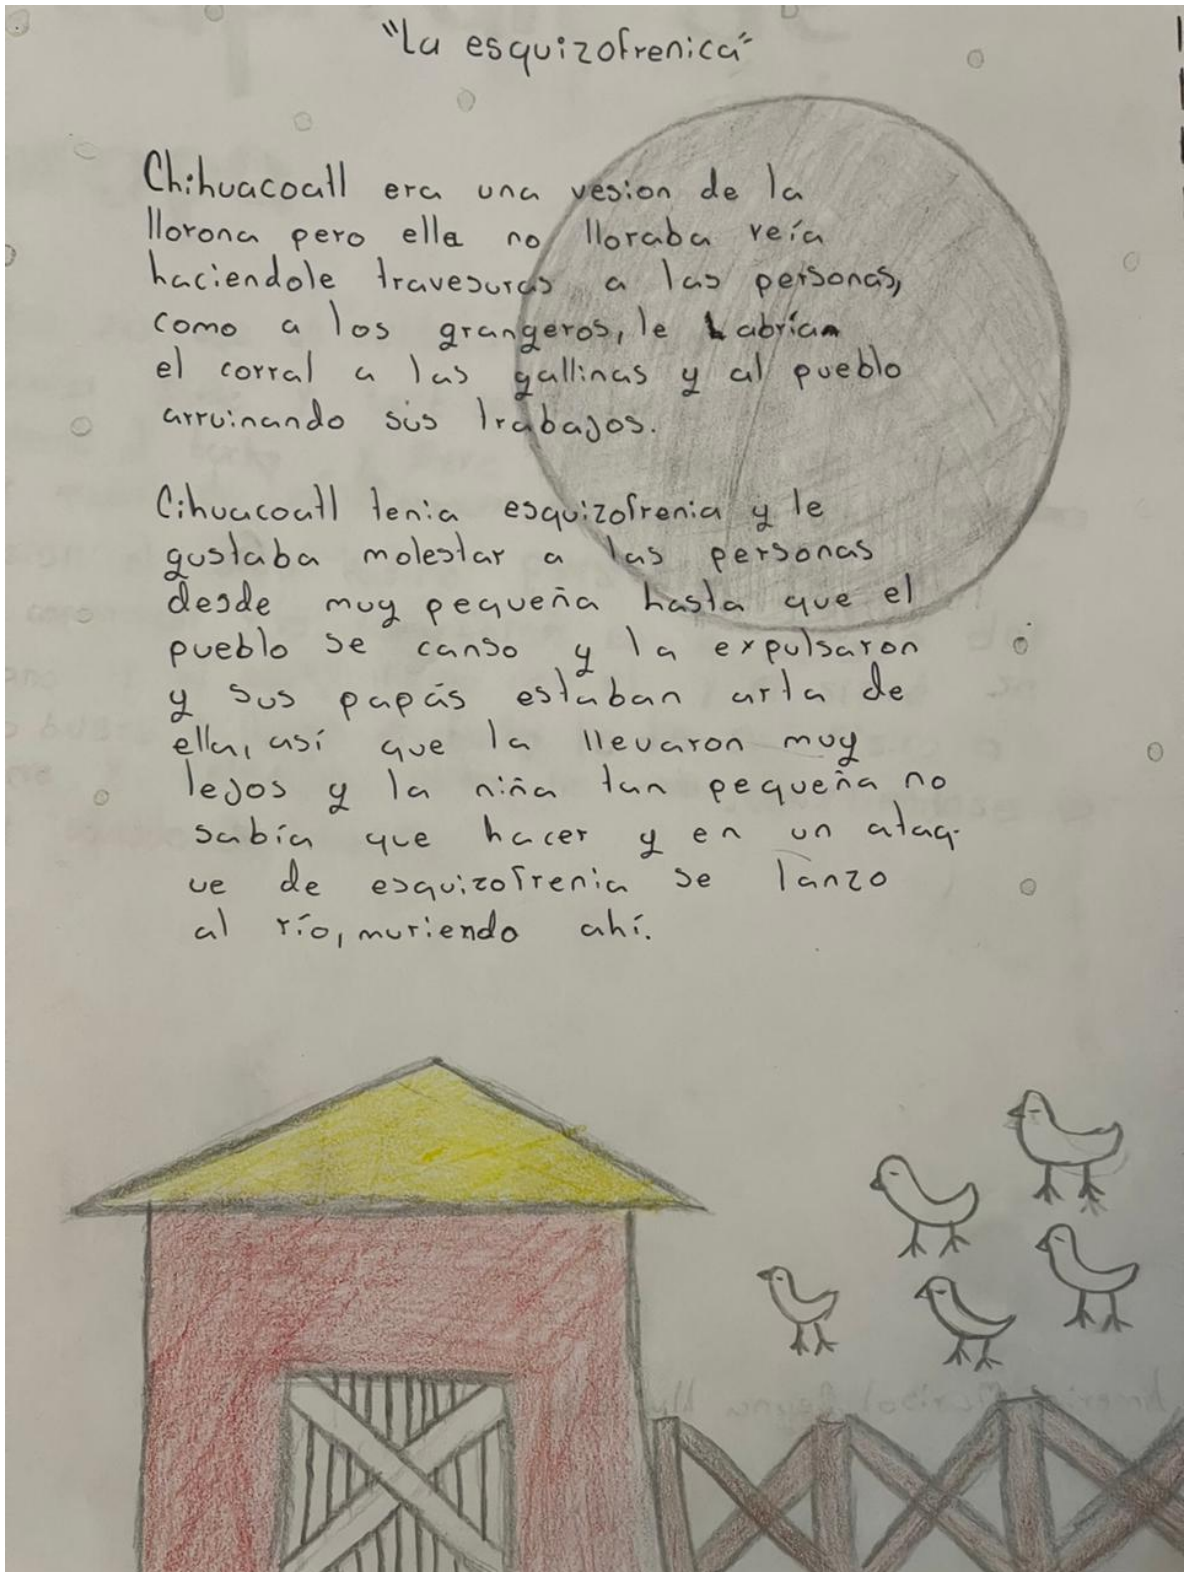 "La esquizofrenica"
Chihuacoatl era una vesion de la
llorona pero ella no lloraba reía
haciendole travesuras a las personas,
como a los grangeros, le habrían
el corral a las gallinas y al pueblo
arruinando sus trabajos.
Cihuacoatl tenia esquizofrenia y le
gustaba molestar a las personas
desde muy pequeña hasta que el
pueblo se canso y la expulsaron
y sus papás estaban arta de
ella, así que la llevaron muy
lejos y la niña tan pequeña no
sabía que hacer y en un ataq-
ue de esquizofrenia se lanzo
al río, muriendo ahí.